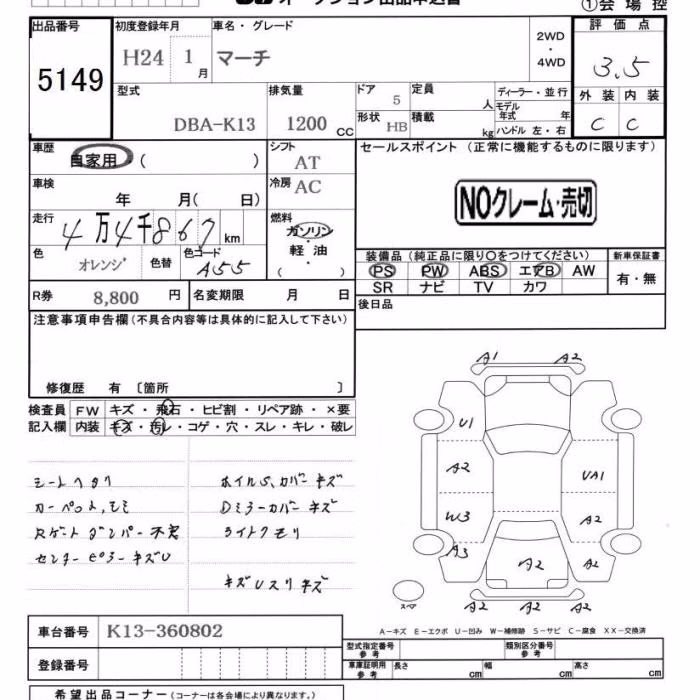 オークション出品申込書
①会場控
出品番号
5149
初度登録年月
H24 1月
車名・グレード
マーチ
2WD
・
4WD
評価点
3.5
外装 内装
C C
型式
DBA-K13
排気量
1200 CC
ドア
5
定員
人
形状
HB
積載
kg
ディーラー・並行
モデル
年式 年
ハンドル 左・右
車歴
自家用 ( )
シフト
AT
車検
年 月( 日)
冷房
AC
走行
4万4千867 km
燃料
ガソリン
軽油
( )
色
オレンジ
色替
色コード
A55
R券
8,800 円
名変期限 月 日
セールスポイント (正常に機能するものに限ります)
NOクレーム・売切
装備品 (純正品に限り○をつけてください)
PS PW ABS エアB AW
SR ナビ TV カワ
新車保証書
有・無
後日品
注意事項申告欄 (不具合内容等は具体的に記入して下さい)
修復歴 有 〔箇所 〕
検査員
記入欄
FW キズ・飛石・ヒビ割・リペア跡・×要
内装 キズ・汚レ・コゲ・穴・スレ・キレ・破レ
シートヘタリ
カーペット、シミ
Rゲートダンパー不良
センターピラーキズU
ホイルS、カバーキズ
Dミラーカバーキズ
ライトクモリ
キズUスリキズ
A1 A2
U1
A2
UA1
W3
A2
A3
A2
A2
A2 A2 A2
スペア
A-キズ E-エクボ U-凹み W-補修跡 S-サビ C-腐食 XX-交換済
車台番号
K13-360802
登録番号
型式指定番号
参考
類別区分番号
参考
車庫証明用
参考
長さ cm
幅 cm
高さ cm
希望出品コーナー (コーナーは各会場により異なります。)